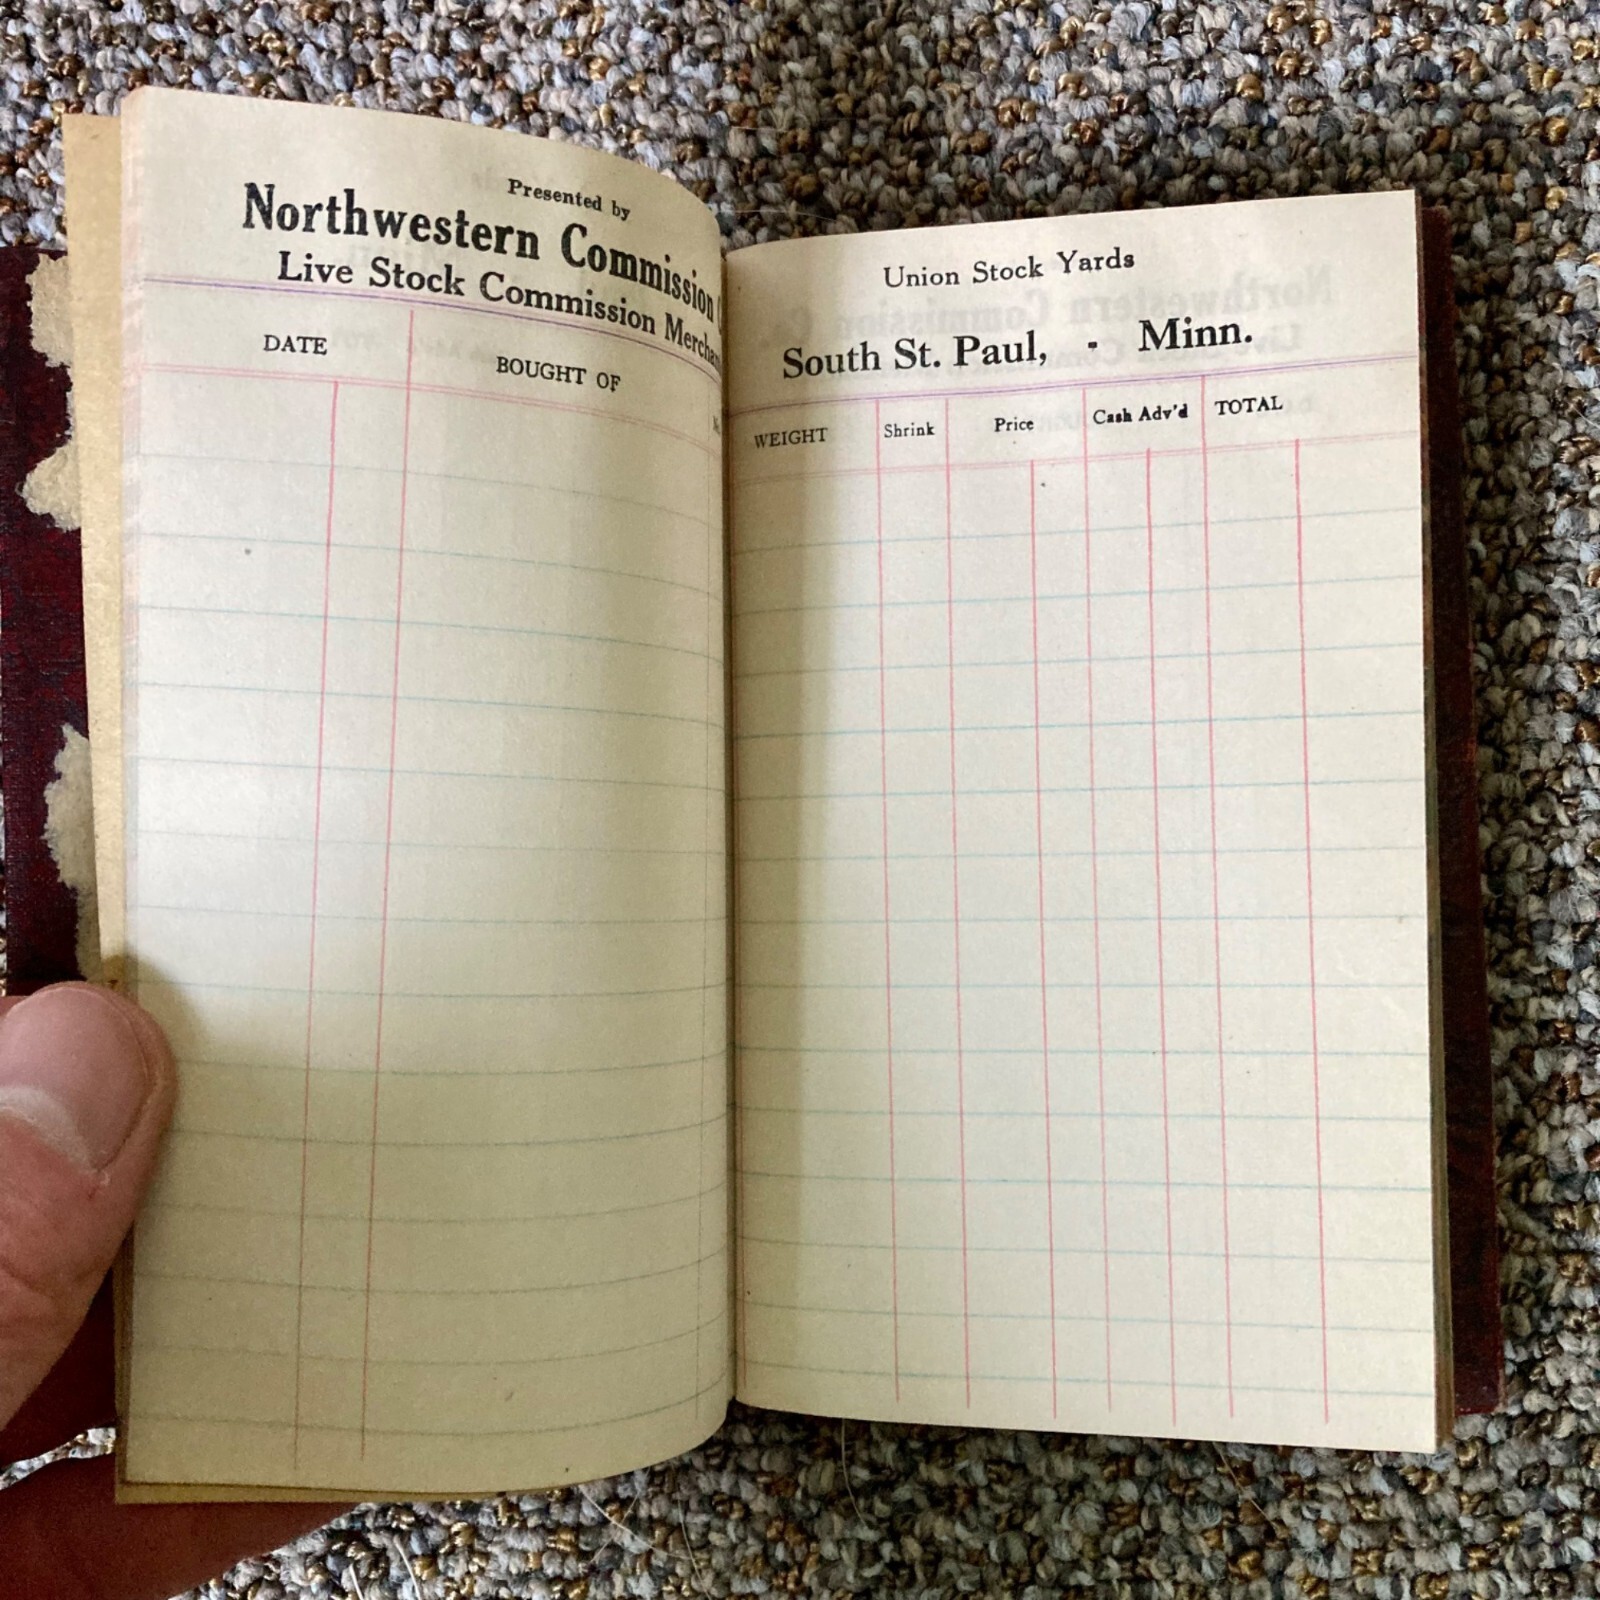 Presented by
Northwestern Commission
Live Stock Commission
DATE
BOUGHT OF
Union Stock Yards
South St. Paul, - Minn.
WEIGHT
Shrink
Price
Cash Adv'd
TOTAL